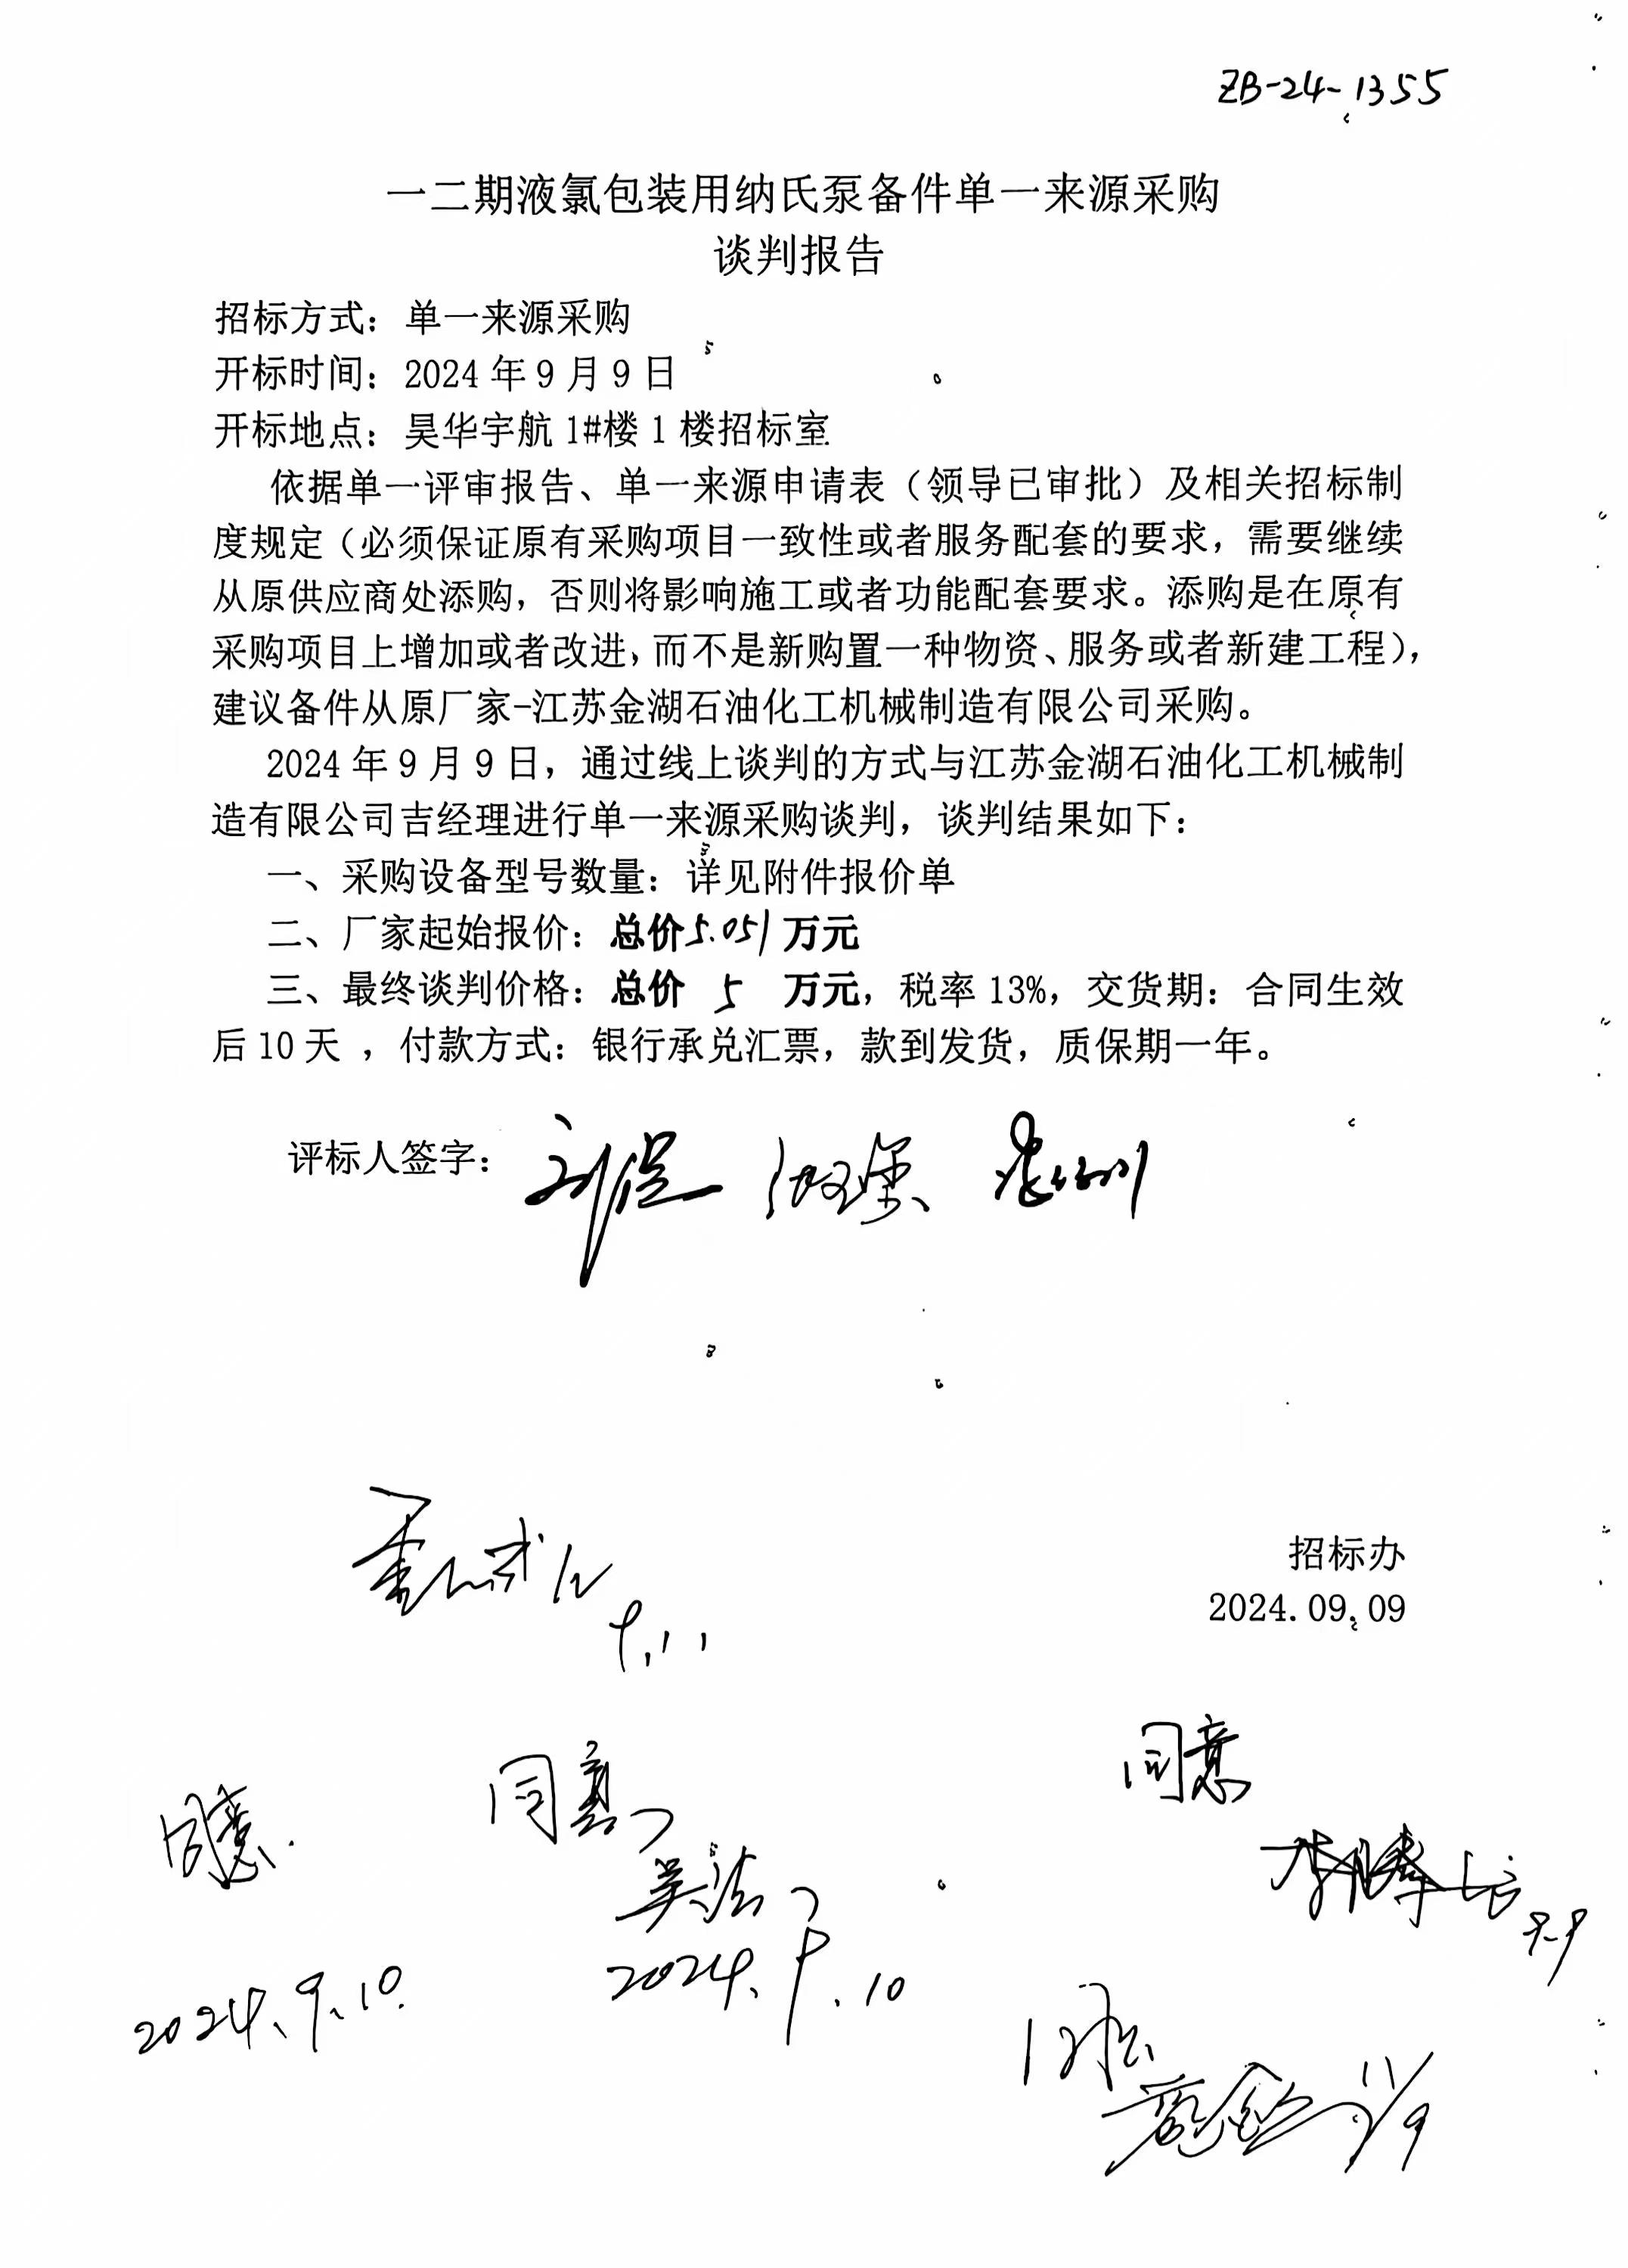 ZB-24-1355
一二期液氯包装用纳氏泵备件单一来源采购
谈判报告
招标方式：单一来源采购
开标时间：2024年9月9日
开标地点：昊华宇航1#楼1楼招标室
依据单一评审报告、单一来源申请表（领导已审批）及相关招标制
度规定（必须保证原有采购项目一致性或者服务配套的要求，需要继续
从原供应商处添购，否则将影响施工或者功能配套要求。添购是在原有
采购项目上增加或者改进，而不是新购置一种物资、服务或者新建工程），
建议备件从原厂家-江苏金湖石油化工机械制造有限公司采购。
2024年9月9日，通过线上谈判的方式与江苏金湖石油化工机械制
造有限公司吉经理进行单一来源采购谈判，谈判结果如下：
一、采购设备型号数量：详见附件报价单
二、厂家起始报价：总价5.051万元
三、最终谈判价格：总价 5 万元，税率13%，交货期：合同生效
后10天 ，付款方式：银行承兑汇票，款到发货，质保期一年。
评标人签字：
招标办
2024.09.09
9.11
同意
同意
同意
2024.9.10
2024.9.10
9-9
11/9